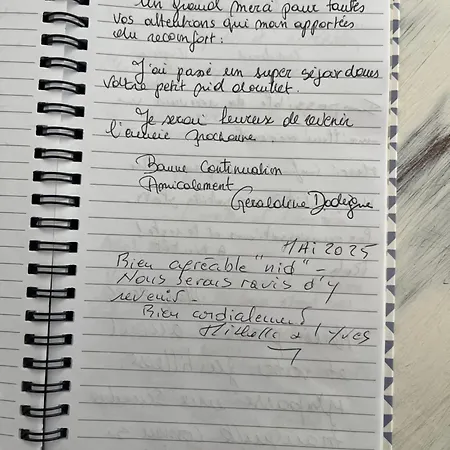 Un grand merci pour toutes
vos attentions qui m'on apportés
du reconfort :
J'ai passé un super séjour dans
votre petit nid douillet.
Je serai heureux de revenir
l'année prochaine.
Bonne Continuation
Amicalement
Geraldine
MAi 2025
Bien agréable "nid" -
Nous serons ravis d'y
revenir -
Bien cordialement
Michelle & Yves